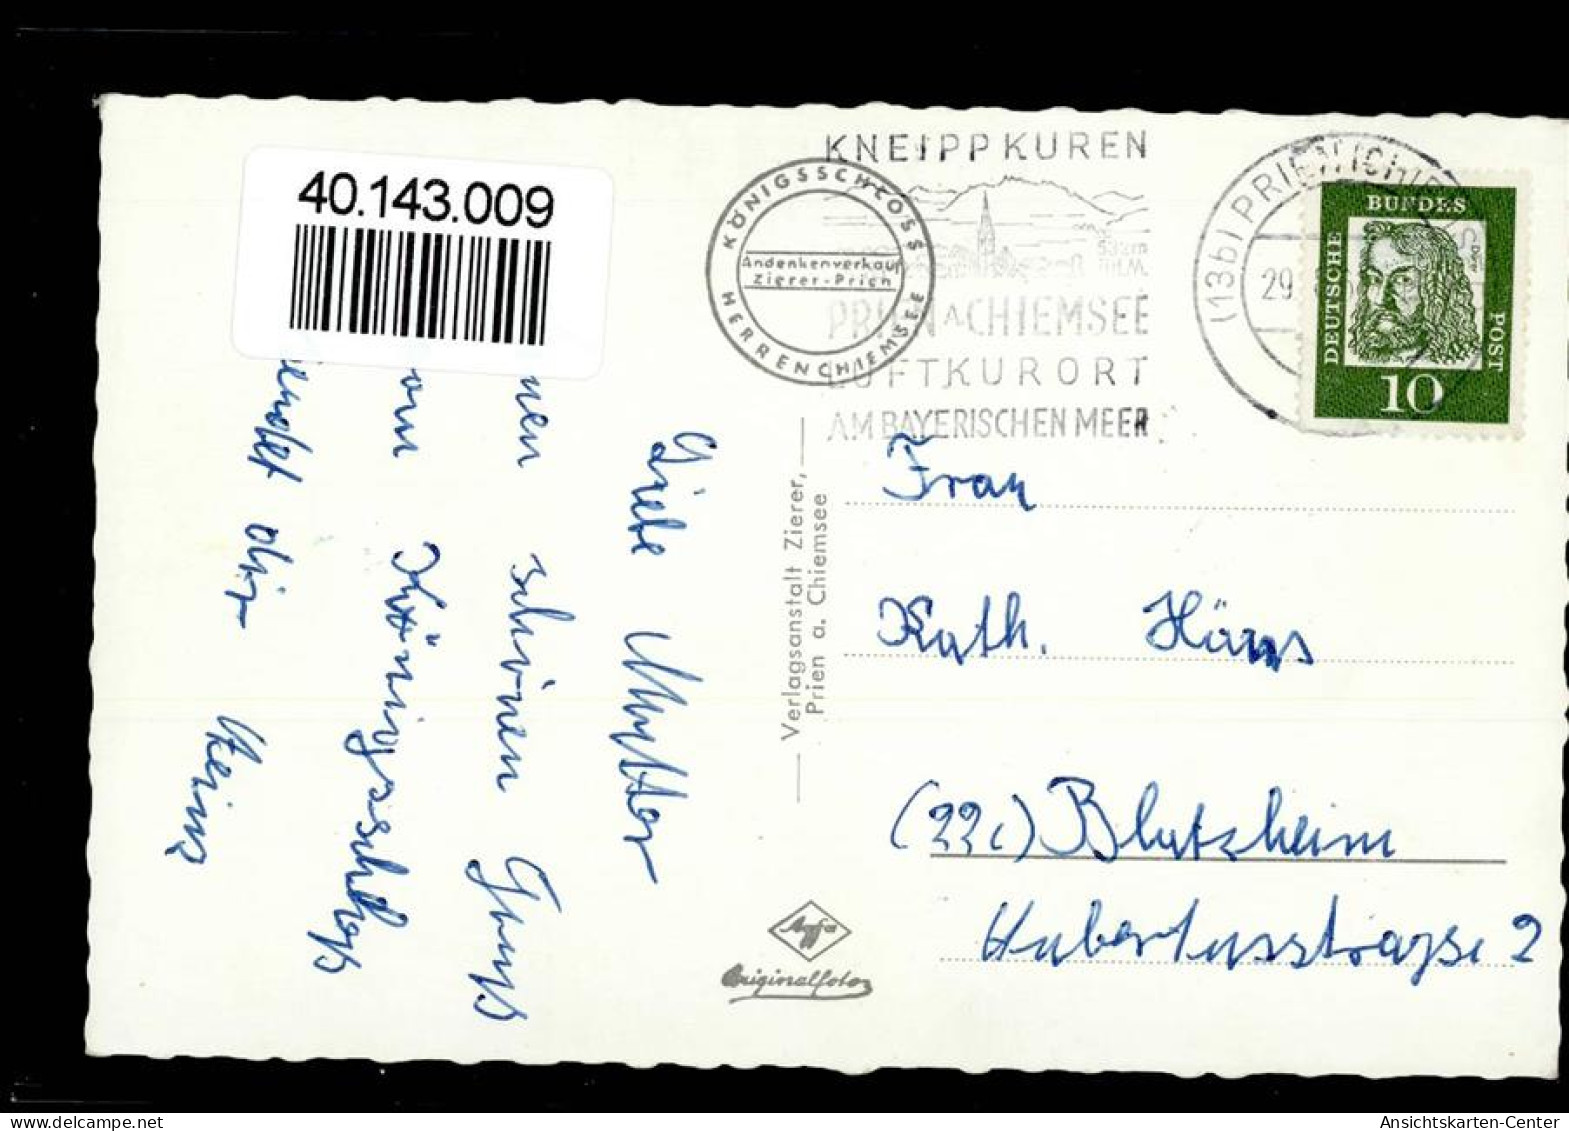 40.143.009
KNEIPPKUREN
533m
ü.d.M.
PRIEN A. CHIEMSEE
LUFTKURORT
AM BAYERISCHEN MEER
KÖNIGSSCHLOSS
Andenkenverkauf
Zierer-Prien
HERRENCHIEMSEE
(13b) PRIEN (CHI
29
DEUTSCHE
BUNDES
POST
10
Liebe Mutter
nen schönen Gruß
om Königsschloß
sendet dir
Heinz
Verlagsanstalt Zierer,
Prien a. Chiemsee
Agfa
Originalfoto
Frau
Kath. Häns
(22c) Blatzheim
Hubertusstraße 2
Ansichtskarten-Center